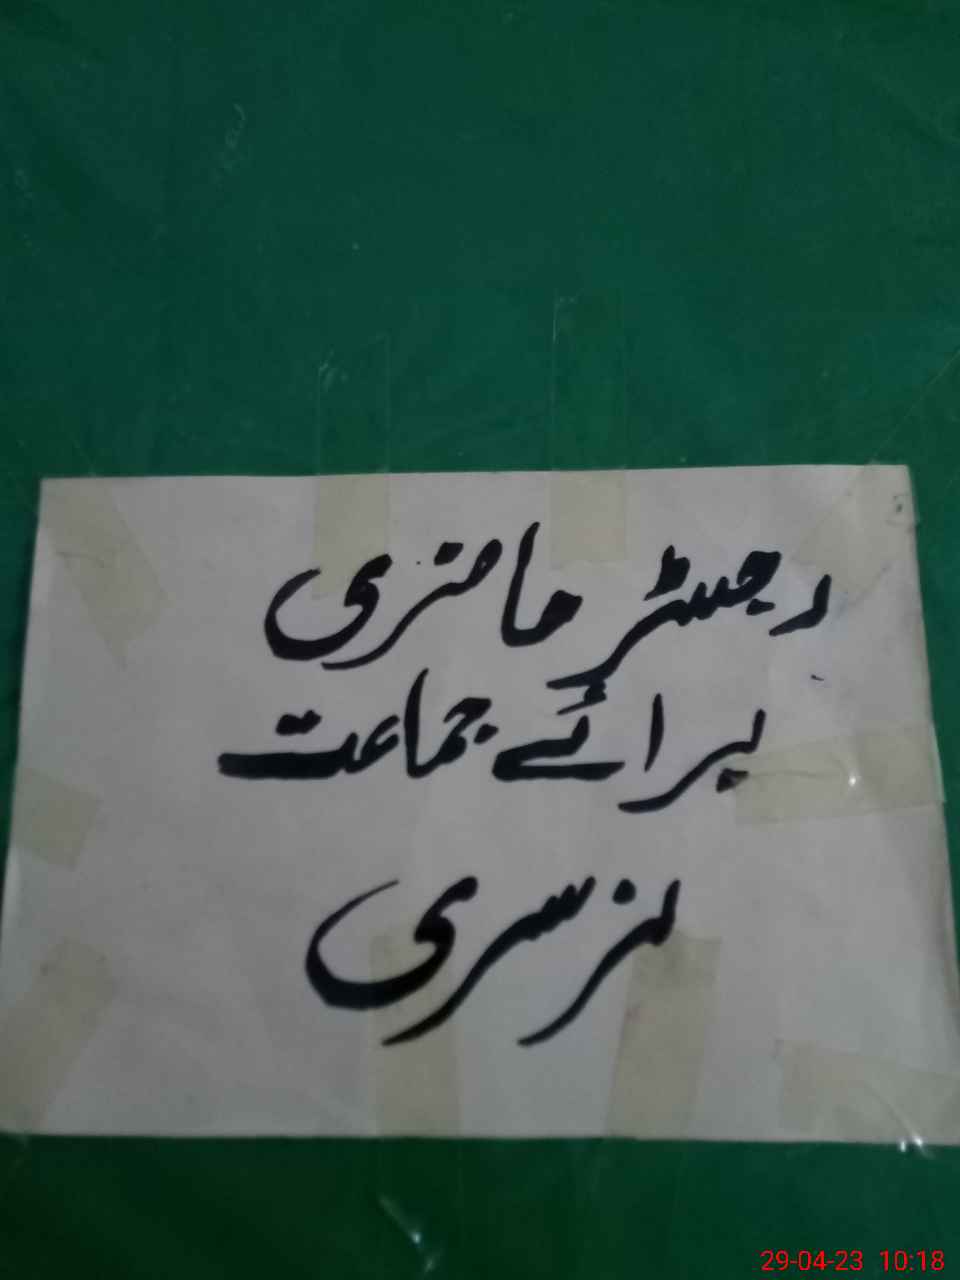 رجسٹر حاضری
برائے جماعت
نرسری
29-04-23 10:18